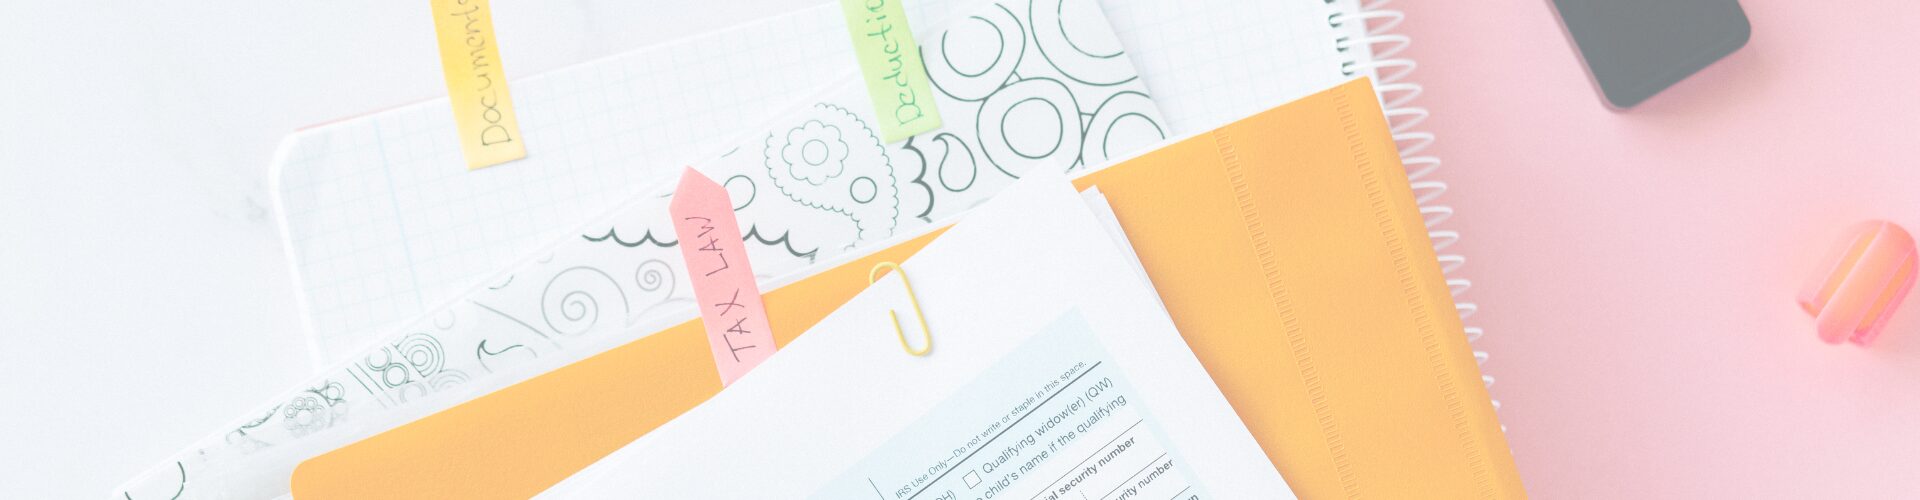 Documents
Deduction
TAX LAW
IRS Use Only—Do not write or staple in this space.
Qualifying widow(er) (QW)
child's name if the qualifying
social security number
security number